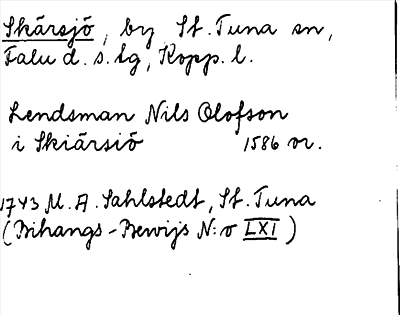 Skärsjö, by St. Tuna sn,
Falu d. s. lg, Kopp. l.
Lendsman Nils Olofson
i Skiärsiö 1586 or.
1743 M. A. Sahlstedt, St. Tuna
(Bihangs-Bewijs N:o LXI)